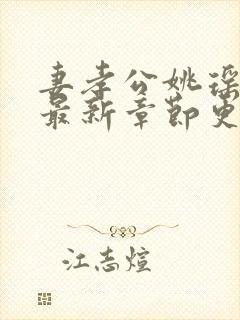 妻孝公姚瑶
最新章节更
江志煊